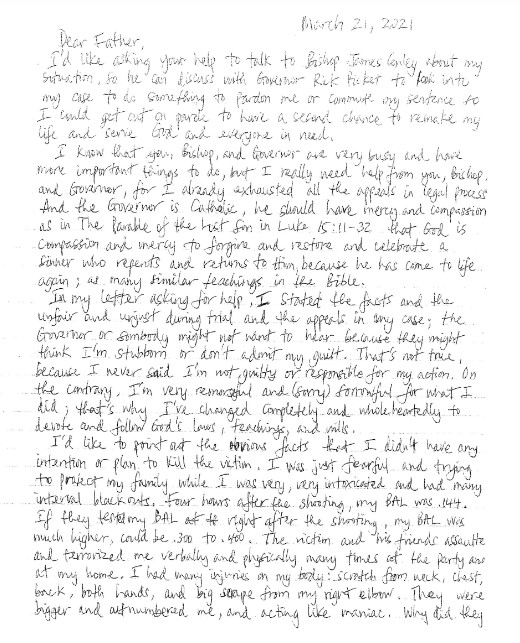 March 21, 2021
Dear Father,
I'd like asking your help to talk to Bishop James Conley about my
situation, so he can discuss with Governor Rick Picker to look into
my case to do something to pardon me or commute my sentence so
I could get out on parole to have a second chance to remake my
life and serve God and everyone in need.
I know that you, Bishop, and Governor are very busy and have
more important things to do, but I really need help from you, Bishop,
and Governor, for I already exhausted all the appeals in legal process
And the Governor is Catholic, he should have mercy and compassion
as in The Parable of the Lost Son in Luke 15:11-32 that God is
compassion and mercy to forgive and restore and celebrate a
sinner who repents and returns to Him, because he has come to life
again; as many similar teachings in the Bible.
In my letter asking for help, I stated the facts and the
unfair and unjust during trial and the appeals in my case; the
Governor or sombody might not want to hear because they might
think I'm stubborn or don't admit my guilt. That's not true,
because I never said I'm not guilty or responsible for my action. On
the contrary, I'm very remorseful and (sorry) sorrowful for what I
did; that's why I've changed completely and wholeheartedly to
devote and follow God's laws, teachings, and wills.
I'd like to point out the obvious facts that I didn't have any
intention or plan to kill the victim. I was just fearful and trying
to protect my family while I was very, very intoxicated and had many
interval blackouts. Four hours after the shooting, my BAL was .144.
If they my BAL right after the shooting, my BAL was
much higher, could be .300 to .400. The victim and his friends assaulte
and terrorized me verbally and physically many times at the party and
at my home. I had many injuries on my body: scratch from neck, chest,
back, both hands, and big scrape from my right elbow. They were
bigger and outnumbered me, and acting like maniac. Why did they